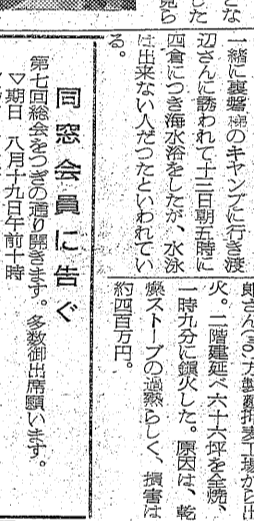 とな
した
一緒に裏磐梯のキヤンプに行き渡
辺さんに誘われて十三日朝五時に
四倉につき海水浴をしたが、水泳
は出来ない人だつたといわれてい
る。
工場から出
火。二階建延べ六十六坪を全焼、
一時九分に鎮火した。原因は、乾
燥ストーブの過熱らしく、損害は
約四百万円。
同窓会員に告ぐ
第七回総会をつぎの通り開きます。多数御出席願います。
▽期日　八月十九日午前十時